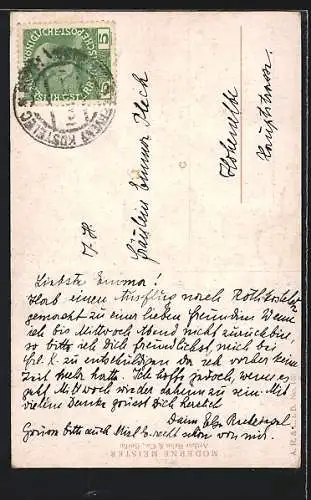 5
KÖNIGLICHE POST
ČERVENÝ KOSTELEC
J. H.
Fräulein Emma Fleck
Hohenelbe
Hauptstrasse
Liebste Emma!
Hab einen Ausflug nach Rothkosteletz
gemacht zu einer lieben Freundin. Wenn
ich bis Mittwoch Abend nicht zurück bin,
so bitte ich Dich freundlichst, mich bei
Frl. K. zu entschuldigen da ich vorher keine
Zeit mehr hatte. Ich hoffe jedoch, wenn es
geht Mittwoch wieder daheim zu sein. Mit
vielem Danke grüsst Dich herzlich
Deine
Grüsse bitte auch recht schön von mir.
MODERNE MEISTER